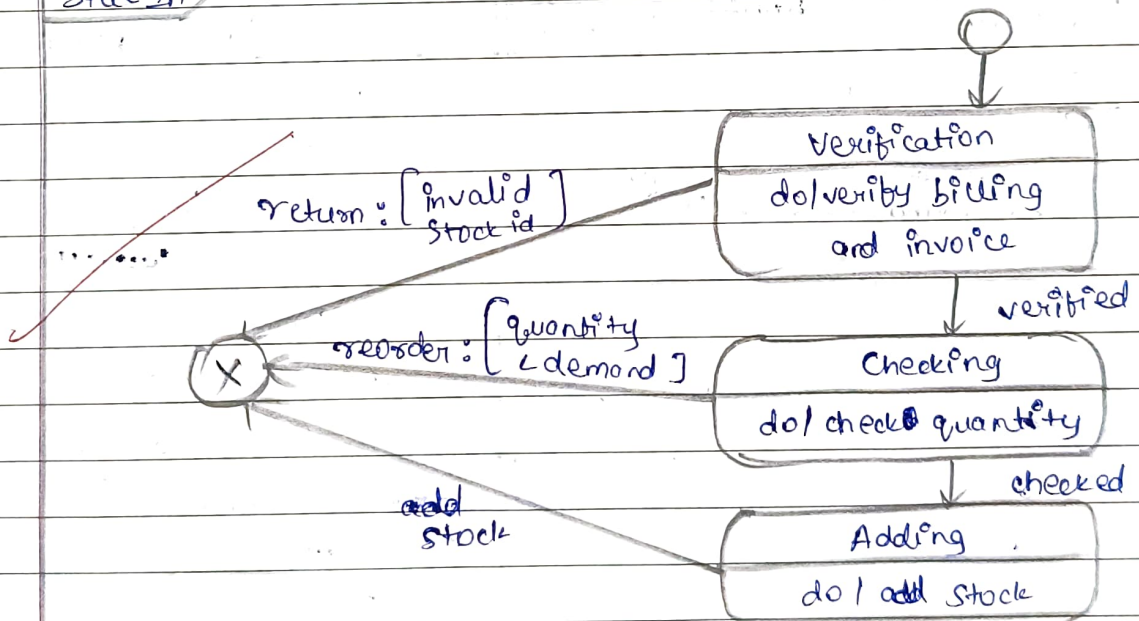 Verification
do/verify billing
and invoice
return: [invalid
stock id]
verified
reorder: [quantity
< demand]
X
Checking
do/ check quantity
checked
add
stock
Adding
do / add stock